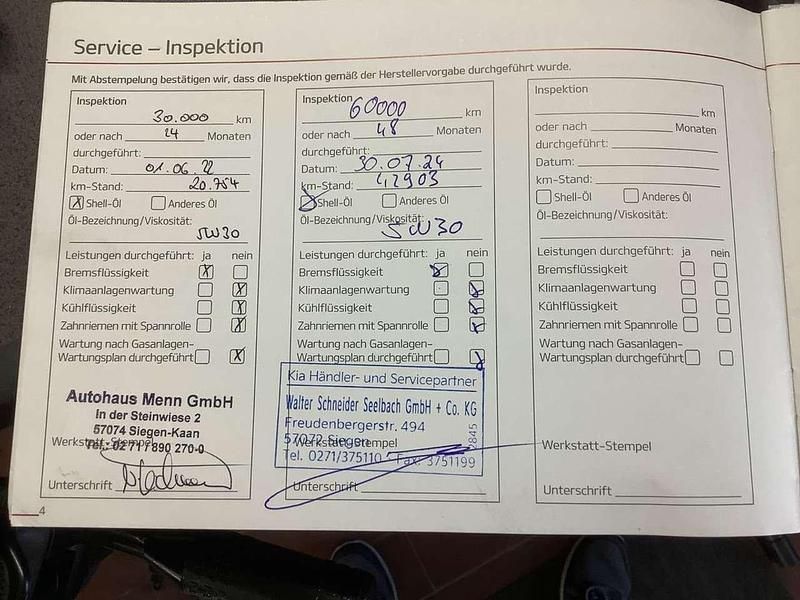 Service – Inspektion
Mit Abstempelung bestätigen wir, dass die Inspektion gemäß der Herstellervorgabe durchgeführt wurde.
Inspektion
30.000 km
oder nach 24 Monaten
durchgeführt:
Datum: 01.06.22
km-Stand: 20.754
X Shell-Öl Anderes Öl
Öl-Bezeichnung/Viskosität:
5W30
Leistungen durchgeführt: ja nein
Bremsflüssigkeit X
Klimaanlagenwartung X
Kühlflüssigkeit X
Zahnriemen mit Spannrolle X
Wartung nach Gasanlagen-
Wartungsplan durchgeführt X
Autohaus Menn GmbH
In der Steinwiese 2
57074 Siegen-Kaan
Werkstatt-Stempel
Tel. 02 71 / 890 270-0
Unterschrift
4
Inspektion
60000 km
oder nach 48 Monaten
durchgeführt:
Datum: 30.07.24
km-Stand: 42903
X Shell-Öl Anderes Öl
Öl-Bezeichnung/Viskosität:
5W30
Leistungen durchgeführt: ja nein
Bremsflüssigkeit X
Klimaanlagenwartung X
Kühlflüssigkeit X
Zahnriemen mit Spannrolle X
Wartung nach Gasanlagen-
Wartungsplan durchgeführt X
Kia Händler- und Servicepartner
Walter Schneider Seelbach GmbH + Co. KG
Freudenbergerstr. 494
57072 Siegen
Werkstatt-Stempel
Tel. 0271/375110 Fax: 3751199
2845
Unterschrift
Inspektion
km
oder nach Monaten
durchgeführt:
Datum:
km-Stand:
Shell-Öl Anderes Öl
Öl-Bezeichnung/Viskosität:
Leistungen durchgeführt: ja nein
Bremsflüssigkeit
Klimaanlagenwartung
Kühlflüssigkeit
Zahnriemen mit Spannrolle
Wartung nach Gasanlagen-
Wartungsplan durchgeführt
Werkstatt-Stempel
Unterschrift